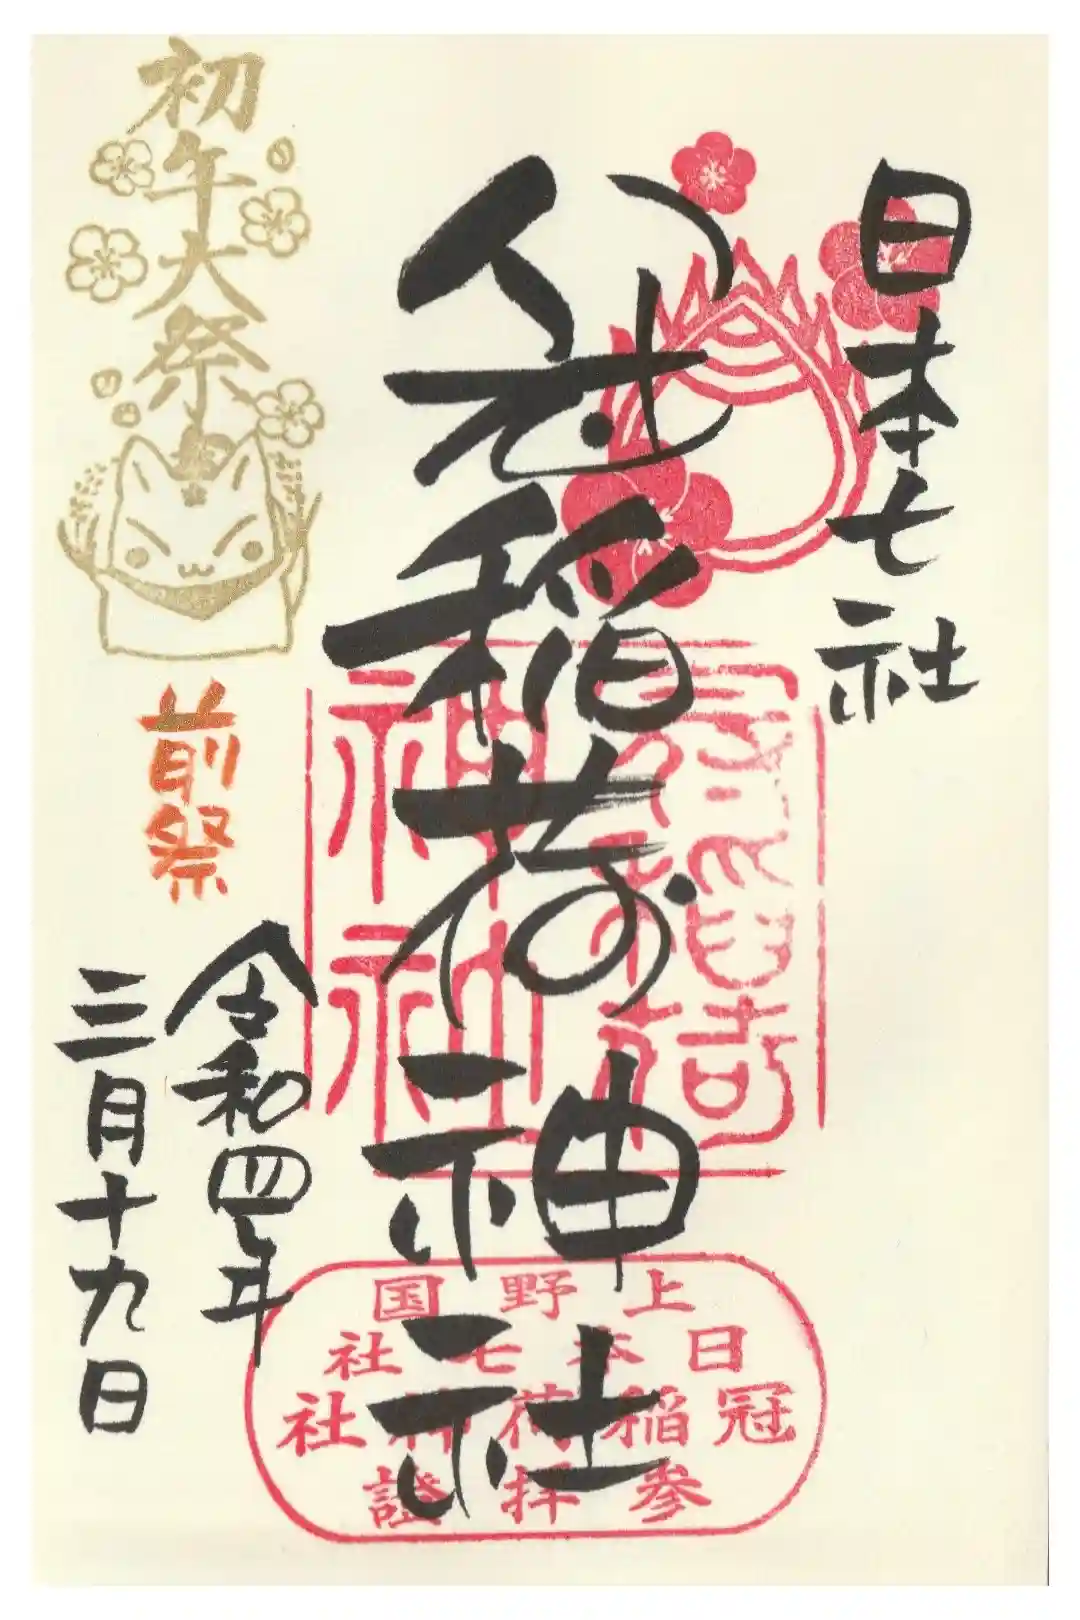 日本七社
冠稲荷神社
初午大祭
前祭
令和四年
三月十九日
上野国
日本七社
冠稲荷神社
參拝證